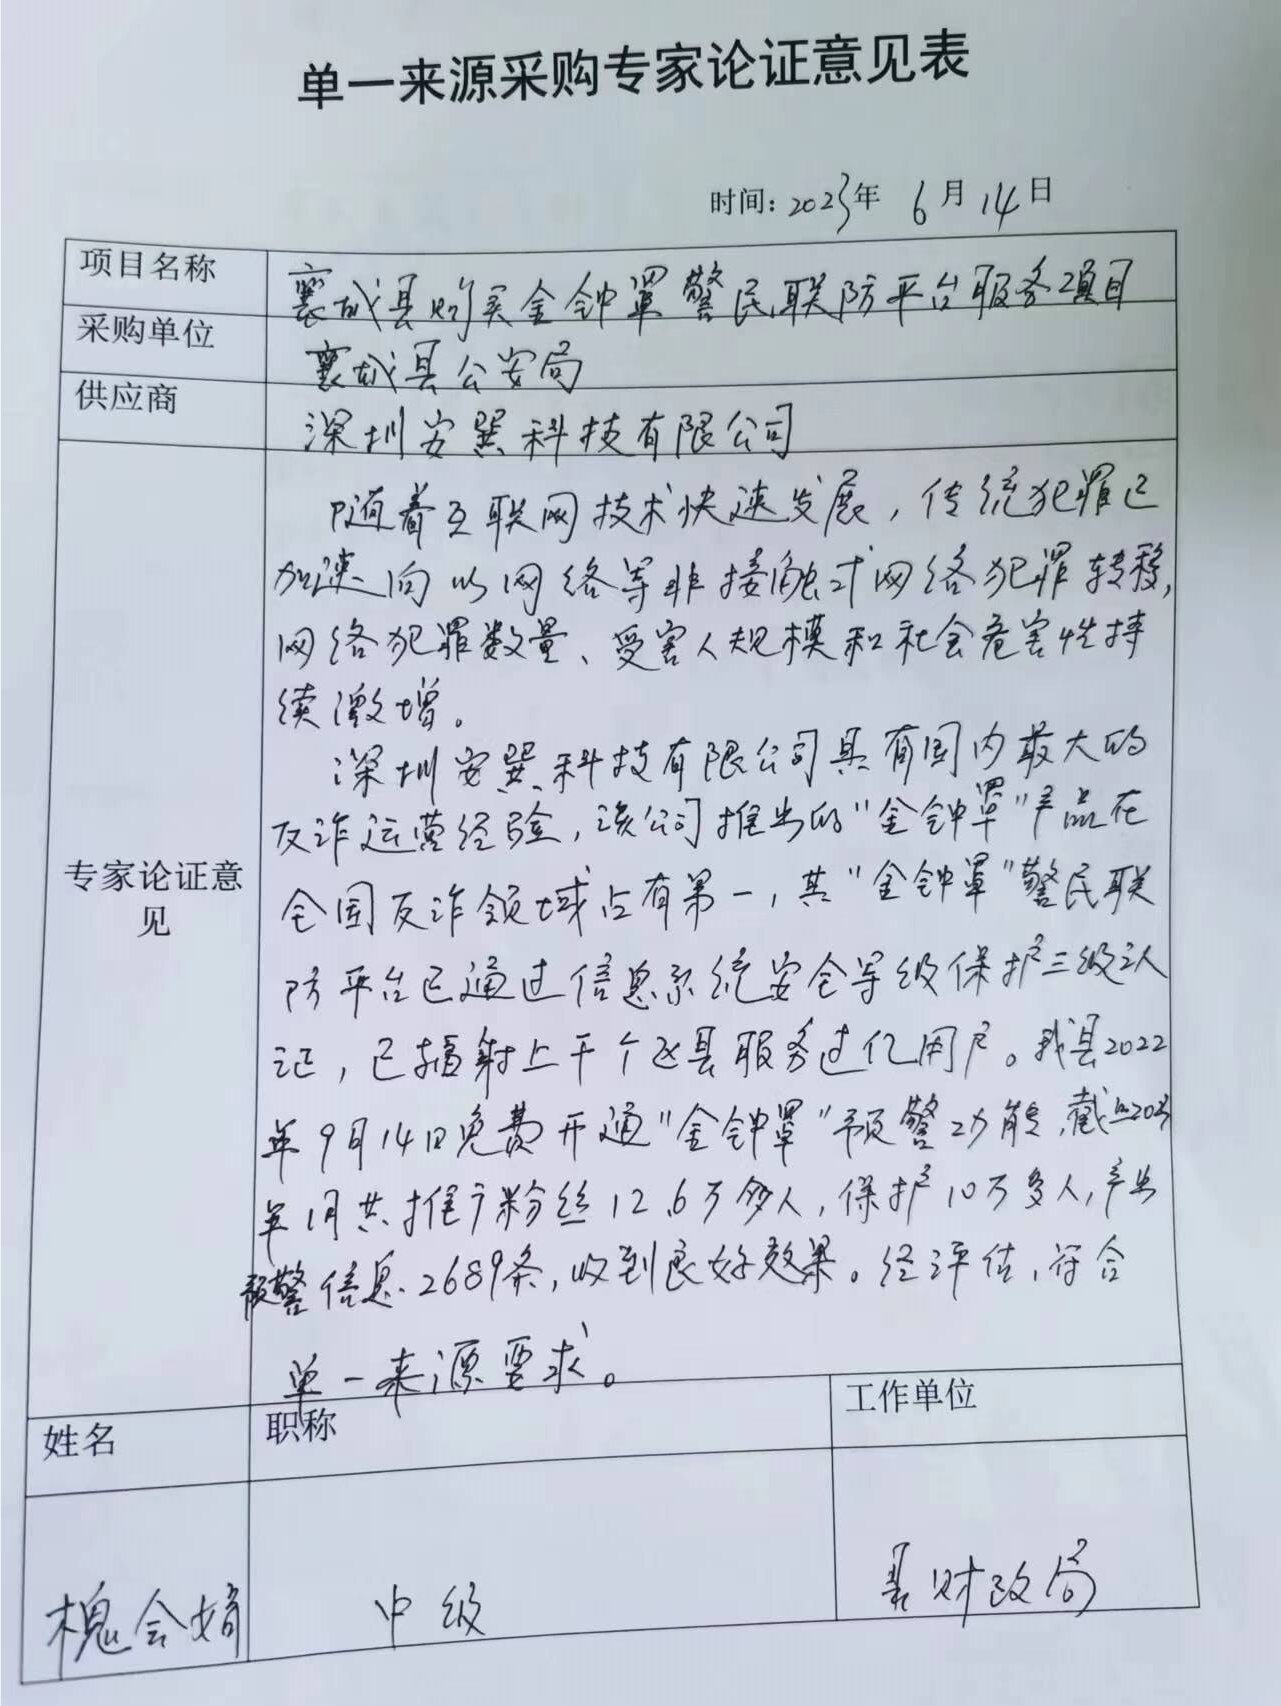 单一来源采购专家论证意见表
时间：2023年 6月14日
项目名称 襄城县购买金钟罩警民联防平台服务项目
采购单位 襄城县公安局
供应商 深圳安巽科技有限公司
专家论证意见
随着互联网技术快速发展，传统犯罪已
加速向以网络等非接触式网络犯罪转移，
网络犯罪数量、受害人规模和社会危害性持
续激增。
深圳安巽科技有限公司具有国内最大的
反诈运营经验，该公司推出的“金钟罩”产品在
全国反诈领域占有第一，其“金钟罩”警民联
防平台已通过信息系统安全等级保护三级认
证，已辐射上千个区县服务过亿用户。我县2022
年9月14日免费开通“金钟罩”预警功能，截止2023
年1月共推广粉丝12.6万多人，保护10万多人，产出
报警信息2689条，收到良好效果。经评估，符合
单一来源要求。
姓名 职称 工作单位
槐会娟 中级 县财政局